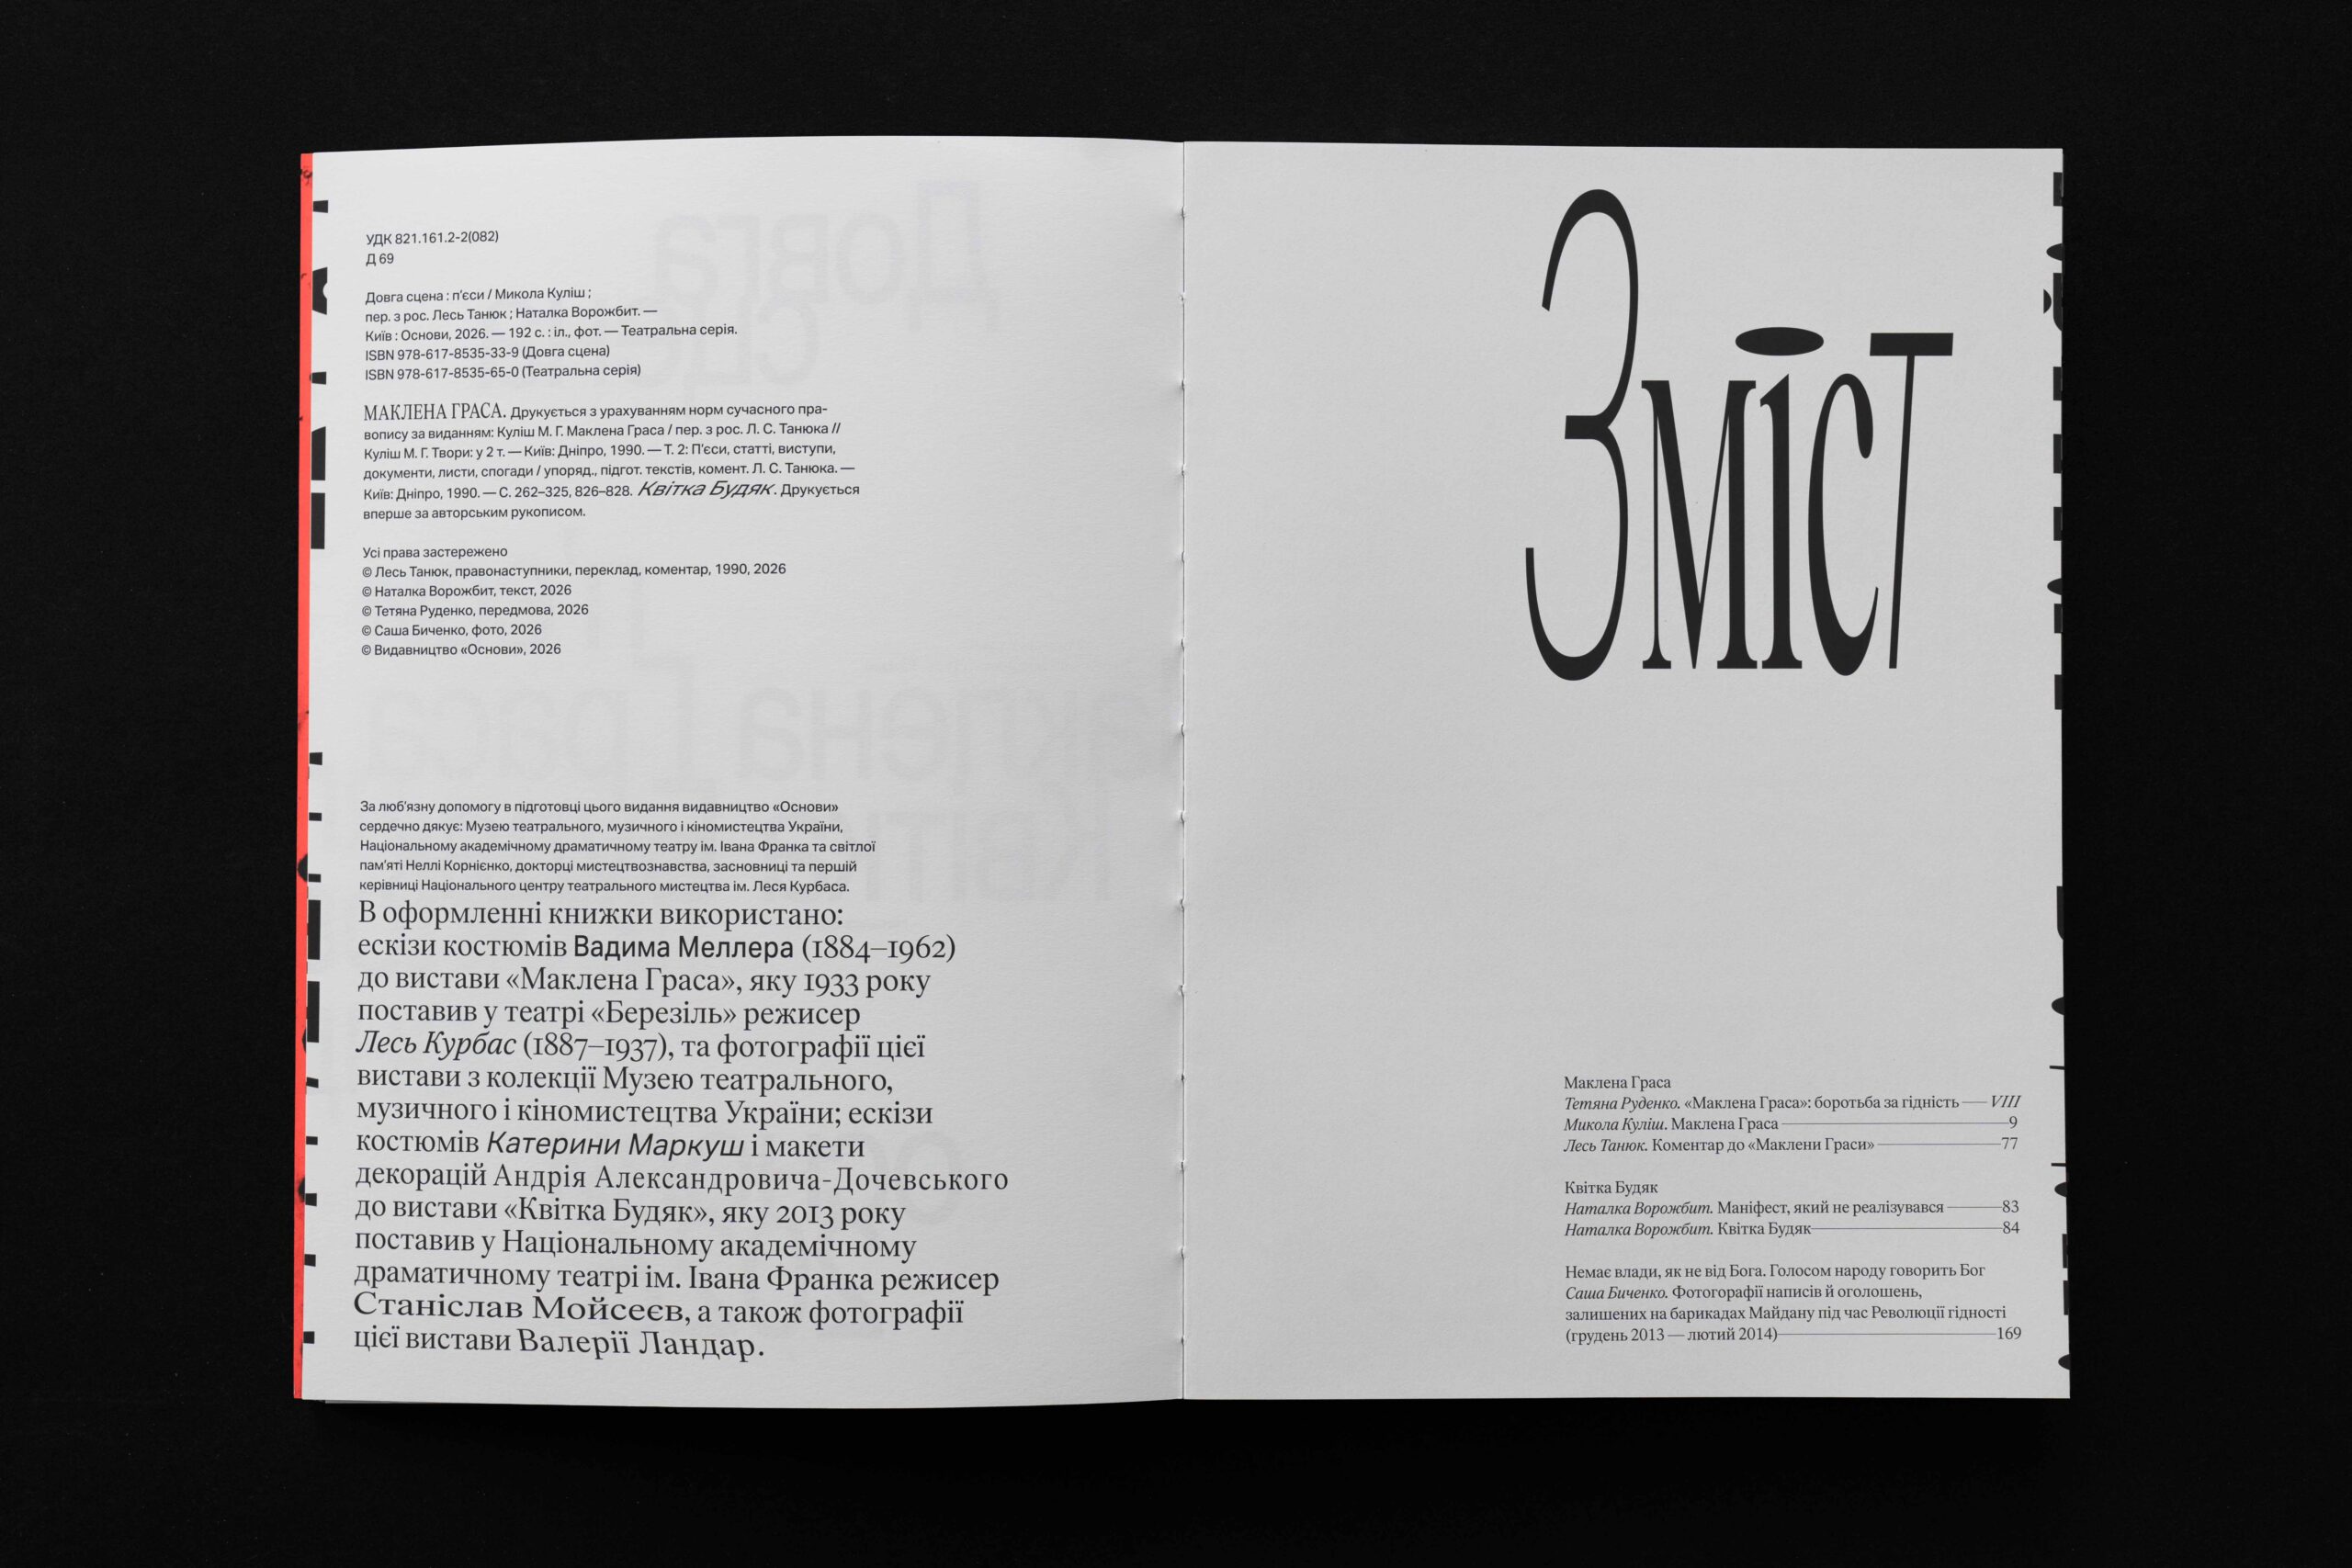 УДК 821.161.2-2(082)
Д 69
Довга сцена : п’єси / Микола Куліш ;
пер. з рос. Лесь Танюк ; Наталка Ворожбит. —
Київ : Основи, 2026. — 192 с. : іл., фот. — Театральна серія.
ISBN 978-617-8535-33-9 (Довга сцена)
ISBN 978-617-8535-65-0 (Театральна серія)
МАКЛЕНА ГРАСА. Друкується з урахуванням норм сучасного пра-
вопису за виданням: Куліш М. Г. Маклена Граса / пер. з рос. Л. С. Танюка //
Куліш М. Г. Твори: у 2 т. — Київ: Дніпро, 1990. — Т. 2: П’єси, статті, виступи,
документи, листи, спогади / упоряд., підгот. текстів, комент. Л. С. Танюка. —
Київ: Дніпро, 1990. — С. 262–325, 826–828. Квітка Будяк. Друкується
вперше за авторським рукописом.
Усі права застережено
© Лесь Танюк, правонаступники, переклад, коментар, 1990, 2026
© Наталка Ворожбит, текст, 2026
© Тетяна Руденко, передмова, 2026
© Саша Биченко, фото, 2026
© Видавництво «Основи», 2026
За люб’язну допомогу в підготовці цього видання видавництво «Основи»
сердечно дякує: Музею театрального, музичного і кіномистецтва України,
Національному академічному драматичному театру ім. Івана Франка та світлої
пам’яті Неллі Корнієнко, докторці мистецтвознавства, засновниці та першій
керівниці Національного центру театрального мистецтва ім. Леся Курбаса.
В оформленні книжки використано:
ескізи костюмів Вадима Меллера (1884–1962)
до вистави «Маклена Граса», яку 1933 року
поставив у театрі «Березіль» режисер
Лесь Курбас (1887–1937), та фотографії цієї
вистави з колекції Музею театрального,
музичного і кіномистецтва України; ескізи
костюмів Катерини Маркуш і макети
декорацій Андрія Александровича-Дочевського
до вистави «Квітка Будяк», яку 2013 року
поставив у Національному академічному
драматичному театрі ім. Івана Франка режисер
Станіслав Мойсеєв, а також фотографії
цієї вистави Валерії Ландар.
Зміст
Маклена Граса
Тетяна Руденко. «Маклена Граса»: боротьба за гідність — VIII
Микола Куліш. Маклена Граса — 9
Лесь Танюк. Коментар до «Маклени Граси» — 77
Квітка Будяк
Наталка Ворожбит. Маніфест, який не реалізувався — 83
Наталка Ворожбит. Квітка Будяк — 84
Немає влади, як не від Бога. Голосом народу говорить Бог
Саша Биченко. Фотогорафії написів й оголошень,
залишених на барикадах Майдану під час Революції гідності
(грудень 2013 — лютий 2014) — 169